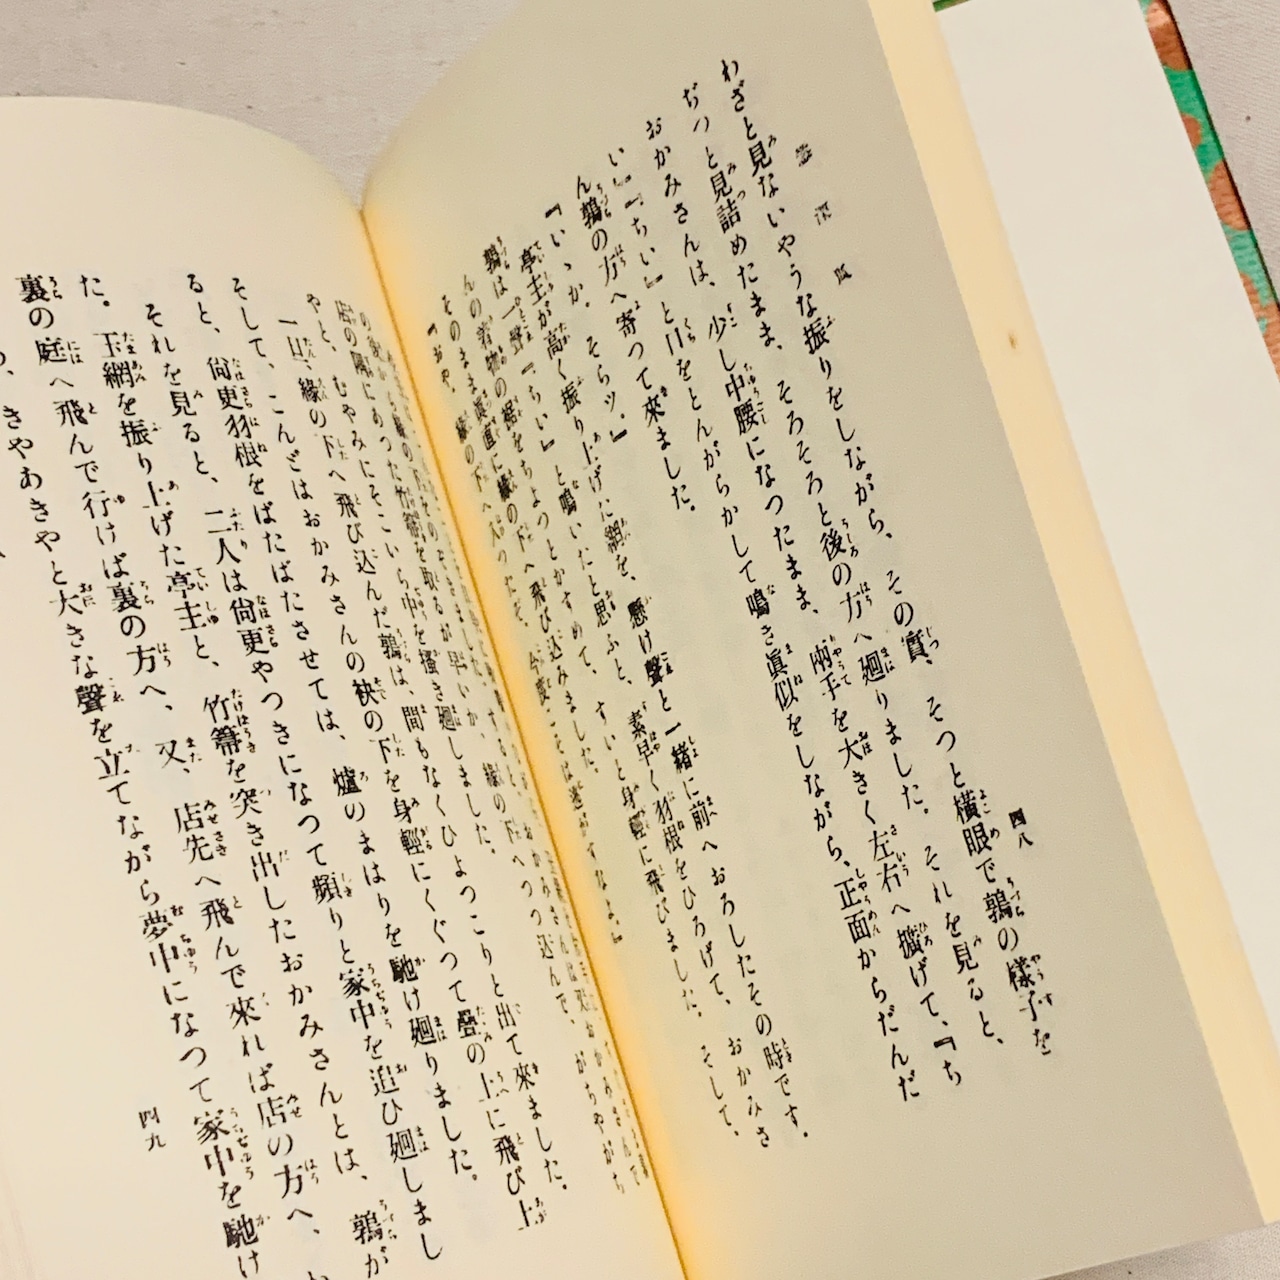 四八
わざと見ないやうな振りをしながら、その實、そつと橫眼で鶉の樣子を
ぢつと見詰めたまま、そろそろと後の方へ廻りました。それを見ると、
おかみさんは、少し中腰になつたまま、兩手を大きく左右へ擴げて、『ち
い』『ちい』と口をとんがらかして鳴き眞似をしながら、正面からだんだ
ん鶉の方へ寄つて來ました。
『いゝか。そらツ。』
亭主が高く振り上げた網を、懸け聲と一緒に前へおろしたその時です。
鶉は一聲『ちい』と鳴いたと思ふと、素早く羽根をひろげて、おかみさ
んの着物の裾をちよつとかすめて、すいと身輕に飛びました。そして、
そのまま眞直に緣の下へ飛び込みました。
『おや、緣の下へ入つたぞ。今度こそは逃がすなよ。』
店の隅にあつた竹箒を取るが早いか、緣の下へつつ込んで、がちやがち
やと、むやみにそこいら中を搔き廻しました。
一旦、緣の下へ飛び込んだ鶉は、間もなくひよつこりと出て來ました。
そして、こんどはおかみさんの袂の下を身輕にくぐつて疊の上に飛び上
ると、尙更羽根をばたばたさせては、爐のまはりを馳け廻りました。
それを見ると、二人は尙更やつきになつて頻りと家中を追ひ廻しまし
た。玉網を振り上げた亭主と、竹箒を突き出したおかみさんとは、鶉が
裏の庭へ飛んで行けば裏の方へ、又、店先へ飛んで來れば店の方へ、
きやあきやと大きな聲を立てながら夢中になつて家中を馳け
四九